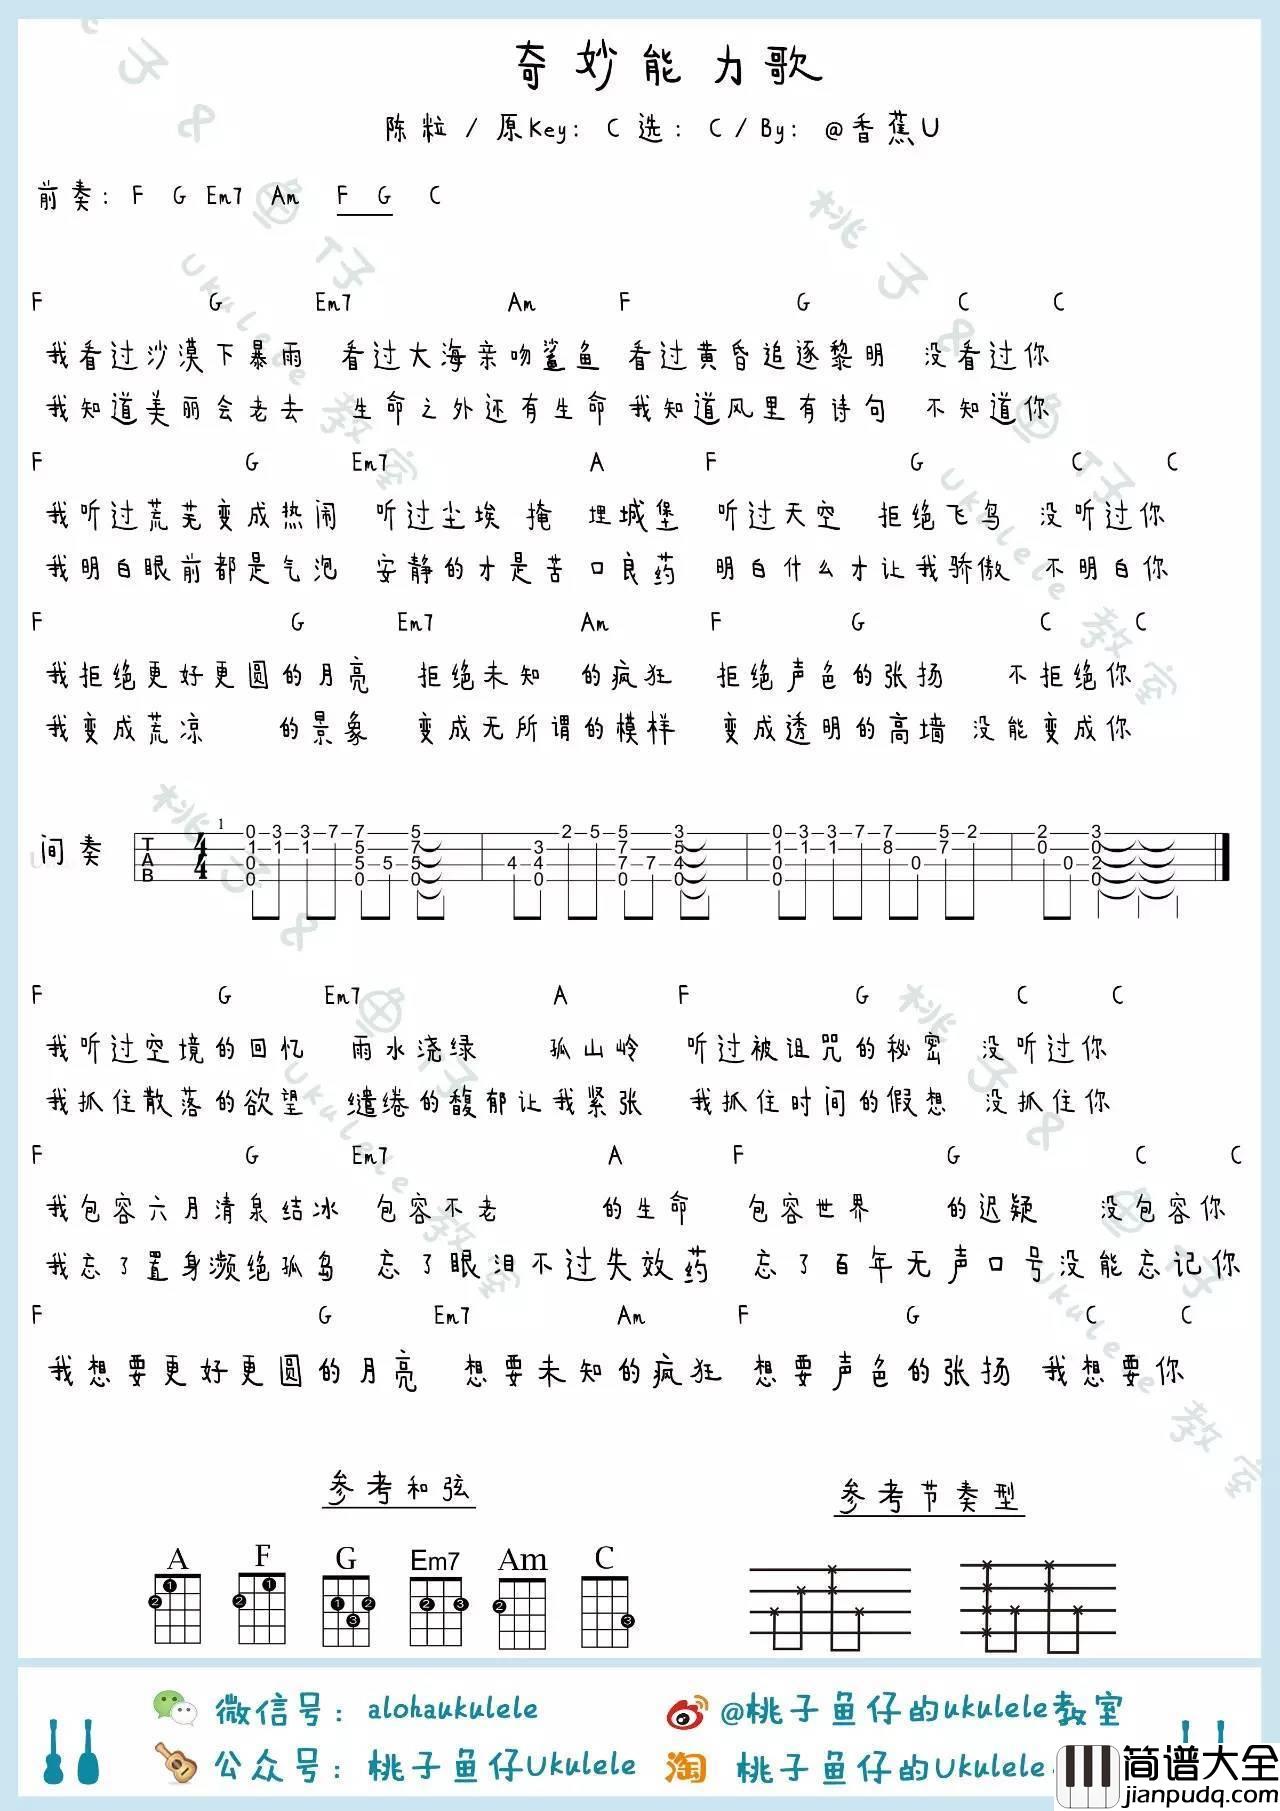 奇妙能力歌
陈粒 / 原Key: C 选: C / By: @香蕉U
前奏: F G Em7 Am F G C
F G Em7 Am F G C C
我看过沙漠下暴雨 看过大海亲吻鲨鱼 看过黄昏追逐黎明 没看过你
我知道美丽会老去 生命之外还有生命 我知道风里有诗句 不知道你
F G Em7 A F G C C
我听过荒芜变成热闹 听过尘埃 掩 埋城堡 听过天空 拒绝飞鸟 没听过你
我明白眼前都是气泡 安静的才是苦口良药 明白什么才让我骄傲 不明白你
F G Em7 Am F G C C
我拒绝更好更圆的月亮 拒绝未知 的疯狂 拒绝声色的张扬 不拒绝你
我变成荒凉 的景象 变成无所谓的模样 变成透明的高墙 没能变成你
间奏
T A B 4/4 1
0 3 3 7 7 5 2 5 5 3 0 3 3 7 7 5 2 2 3
1 1 1 5 7 3 7 5 1 1 1 8 7 0 0
0 5 5 0 4 4 7 7 4 0 0 0 2
0 0 0 0 0 0 0 0
F G Em7 A F G C C
我听过空境的回忆 雨水浇绿 孤山岭 听过被诅咒的秘密 没听过你
我抓住散落的欲望 缱绻的馥郁让我紧张 我抓住时间的假想 没抓住你
F G Em7 A F G C C
我包容六月清泉结冰 包容不老 的生命 包容世界 的迟疑 没包容你
我忘了置身濒绝孤岛 忘了眼泪不过失效药 忘了百年无声口号没能忘记你
F G Em7 Am F G C C
我想要更好更圆的月亮 想要未知的疯狂 想要声色的张扬 我想要你
参考和弦 参考节奏型
A F G Em7 Am C
微信号: alohaukulele @桃子鱼仔的ukulele教室
公众号: 桃子鱼仔Ukulele 淘 桃子鱼仔的Ukulele
简谱大全
jianpudq.com
桃子&鱼仔
Ukulele教室